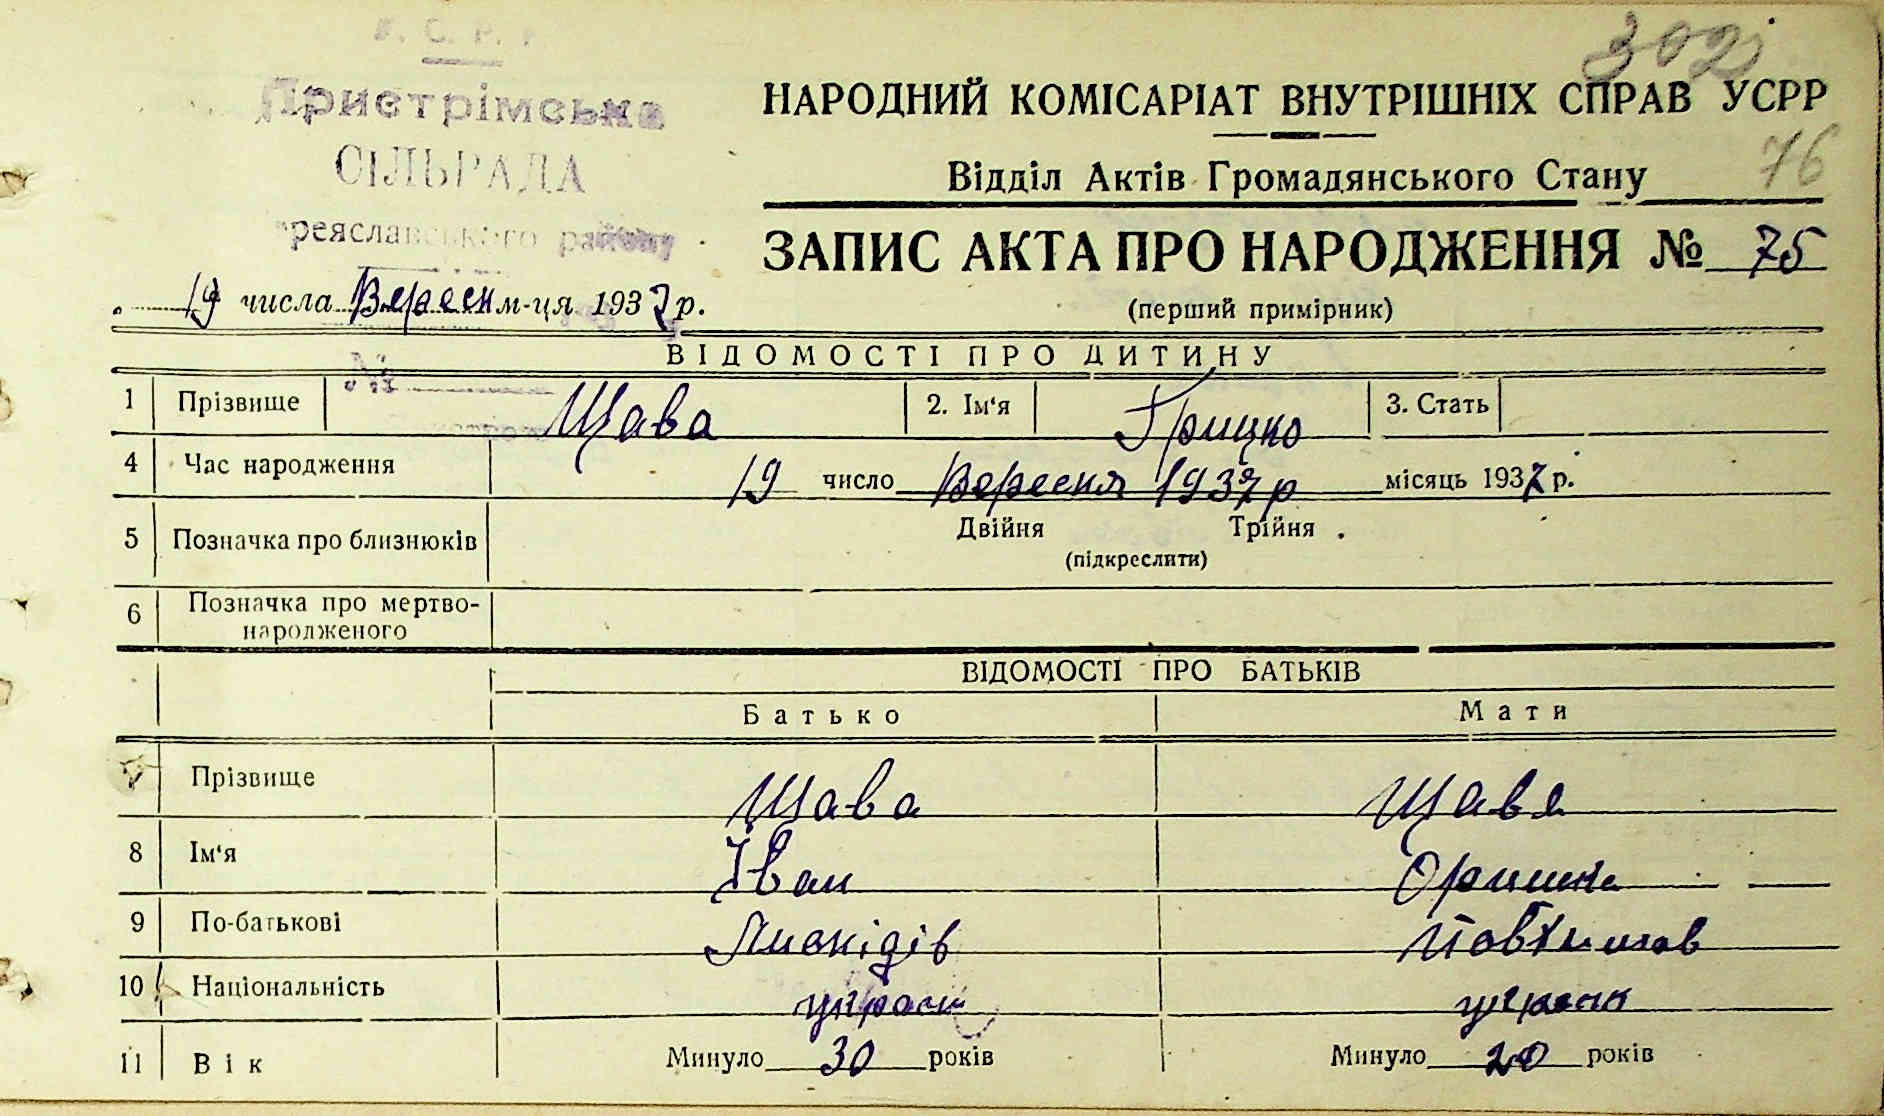 У. С. Р. Р
Пристрімська
СІЛЬРАДА
реяславського району
302
НАРОДНИЙ КОМІСАРІАТ ВНУТРІШНІХ СПРАВ УСРР
76
Відділ Актів Громадянського Стану
ЗАПИС АКТА ПРО НАРОДЖЕННЯ № 75
(перший примірник)
19 числа Вересн м-ця 1937 р.
№
ВІДОМОСТІ ПРО ДИТИНУ
1 Прізвище Щава 2. Ім'я Грицко 3. Стать
4 Час народження 19 число Вересня 1937 р місяць 1937 р.
5 Позначка про близнюків Двійня Трійня
(підкреслити)
6 Позначка про мертво-
народженого
ВІДОМОСТІ ПРО БАТЬКІВ
Батько Мати
7 Прізвище Щава Щава
8 Ім'я Іван Оришка
9 По-батькові
10 Національність украін украін
11 Вік Минуло 30 років Минуло 20 років